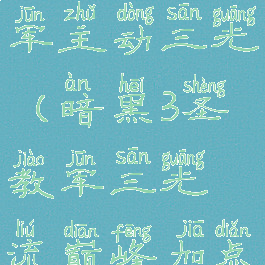 jūn zhǔ dòng sān guāng
军主动三光
àn hēi shèng
（暗黑3圣
jiào jūn sān guāng
教军三光
liú diān fēng jiā diǎn
流巅峰加点